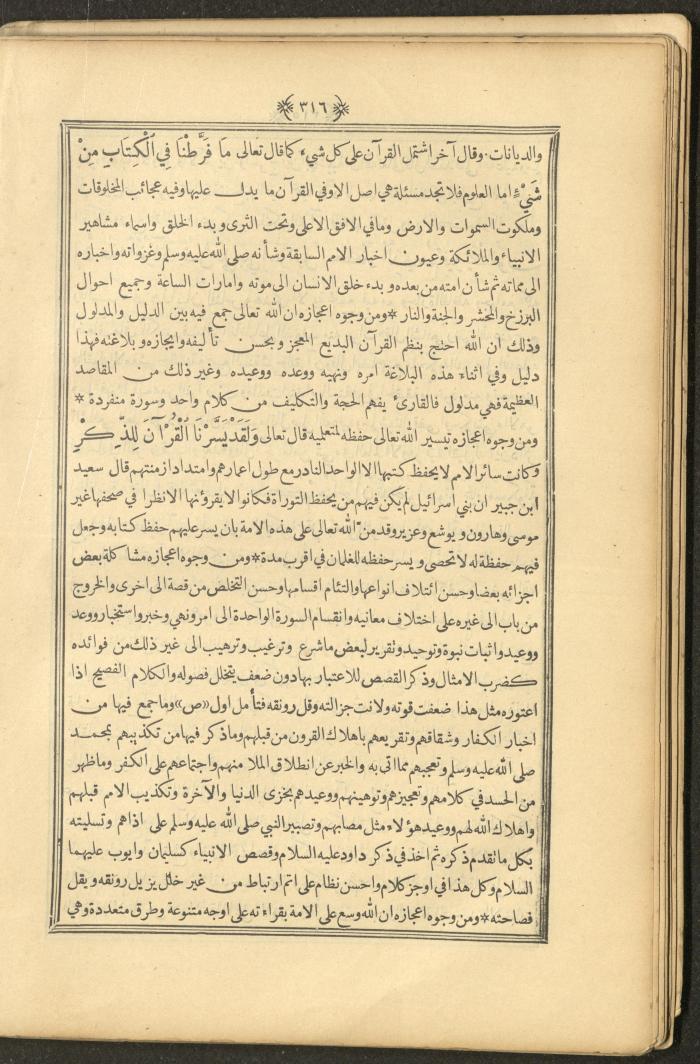 ٣١٦
والديانات. وقال آخر اشتمل القرآن على كل شيء كما قال تعالى مَا فَرَّطْنَا فِي الْكِتَابِ مِنْ
شَيْءٍ اما العلوم فلا تجد مسئلة هي اصل الا وفي القرآن ما يدل عليها وفيه عجائب المخلوقات
وملكوت السموات والارض وما في الافق الاعلى وتحت الثرى وبدء الخلق واسماء مشاهير
الانبياء والملائكة وعيون اخبار الامم السابقة وشأنه صلى الله عليه وسلم وغزواته واخباره
الى مماته ثم شأن امته من بعده وبدء خلق الانسان الى موته وامارات الساعة وجميع احوال
البرزخ والمحشر والجنة والنار * ومن وجوه اعجازه ان الله تعالى جمع فيه بين الدليل والمدلول
وذلك ان الله احتج بنظم القرآن البديع المعجز وبحسن تأليفه وايجازه وبلاغته فهذا
دليل وفي اثناء هذه البلاغة امره ونهيه ووعده ووعيده وغير ذلك من المقاصد
العظيمة فهي مدلول فالقارئ يفهم الحجة والتكليف من كلام واحد وسورة منفردة *
ومن وجوه اعجازه تيسير الله تعالى حفظه لمتعلميه قال تعالى وَلَقَدْ يَسَّرْنَا الْقُرْآنَ لِلذِّكْرِ
وكانت سائر الامم لا يحفظ كتبها الا الواحد النادر مع طول اعمارهم وامتداد ازمنتهم قال سعيد
ابن جبير ان بني اسرائيل لم يكن فيهم من يحفظ التوراة فكانوا لا يقرؤنها الا نظرا في صحفها غير
موسى وهارون ويوشع وعزير وقد منّ الله تعالى على هذه الامة بان يسر عليهم حفظ كتابه وجعل
فيهم حفظة له لا تحصى ويسر حفظه للغلمان في اقرب مدة * ومن وجوه اعجازه مشاكلة بعض
اجزائه بعضا وحسن ائتلاف انواعها والتئام اقسامها وحسن التخلص من قصة الى اخرى والخروج
من باب الى غيره على اختلاف معانيه وانقسام السورة الواحدة الى امر ونهي وخبر واستخبار ووعد
ووعيد واثبات نبوة وتوحيد وتقرير لبعض ما شرع وترغيب وترهيب الى غير ذلك من فوائده
كضرب الامثال وذكر القصص للاعتبار بها دون ضعف يتخلل فصوله والكلام الفصيح اذا
اعتوره مثل هذا ضعفت قوته ولانت جزالته وقل رونقه فتأمل اول «ص» وما جمع فيها من
اخبار الكفار وشقاقهم وتقريعهم باهلاك القرون من قبلهم وما ذكر فيها من تكذيبهم بمحمد
صلى الله عليه وسلم وتعجبهم مما اتى به والخبر عن انطلاق الملا منهم واجتماعهم على الكفر وما ظهر
من الحسد في كلامهم وتعجيزهم وتوهينهم ووعيدهم بخزي الدنيا والآخرة وتكذيب الامم قبلهم
واهلاك الله لهم ووعيد هؤلاء مثل مصابهم وتصبير النبي صلى الله عليه وسلم على اذاهم وتسليته
بكل ما تقدم ذكره ثم اخذ في ذكر داود عليه السلام وقصص الانبياء كسليمان وايوب عليهما
السلام وكل هذا في اوجز كلام واحسن نظام على اتم ارتباط من غير خلل يزيل رونقه ويقل
فصاحته * ومن وجوه اعجازه ان الله وسع على الامة بقراءته على اوجه متنوعة وطرق متعددة وهي